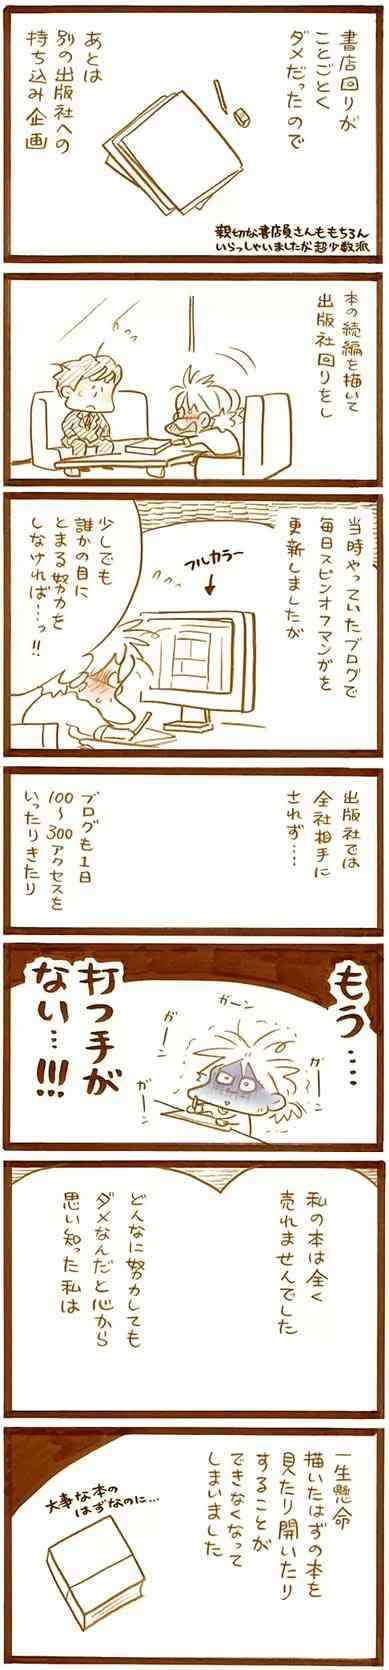 書店回りが
ことごとく
ダメだったので
あとは
別の出版社への
持ち込み企画
親切な書店員さんももちろん
いらっしゃいましたが超少数派
本の続編を描いて
出版社回りをし
当時やっていたブログで
毎日スピンオフマンガを
更新しましたが
フルカラー
少しでも
誰かの目に
とまる努力を
しなければ…っ!!
出版社では
全社相手に
されず…‥
ブログも1日
100〜300アクセスを
いったりきたり
もう‥‥
打つ手が
ない…!!!
ガーン
ガーン
ガーン
ガーン
私の本は全く
売れませんでした
どんなに努力しても
ダメなんだと心から
思い知った私は
一生懸命
描いたはずの本を
見たり開いたり
することが
できなくなって
しまいました
大事な本の
はずなのに…